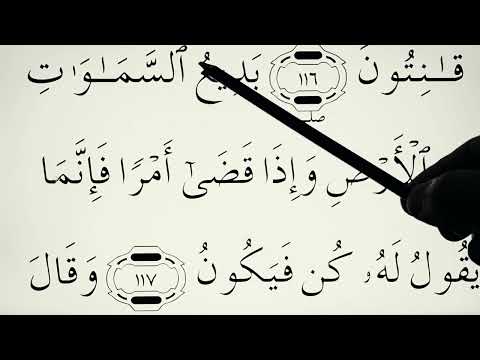 قَـٰنِتُونَ ١١٦ بَدِيعُ ٱلسَّمَـٰوَٰتِ
ٱلْأَرْضِ ۖ وَإِذَا قَضَىٰٓ أَمْرًا فَإِنَّمَا
يَقُولُ لَهُۥ كُن فَيَكُونُ ١١٧ وَقَالَ